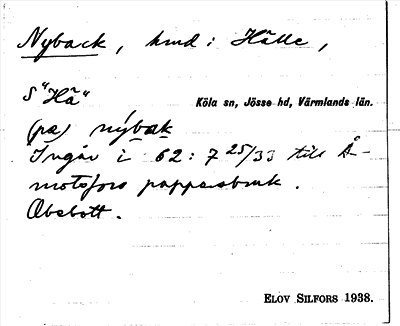 Nyback, hmd i Hälle,
S "Hä"
Köla sn, Jösse hd, Värmlands län.
(på) nýbak
Ingår i 62: 7 25/33 till Å-
motsfors pappersbruk.
Obebott.
ELOV SILFORS 1938.